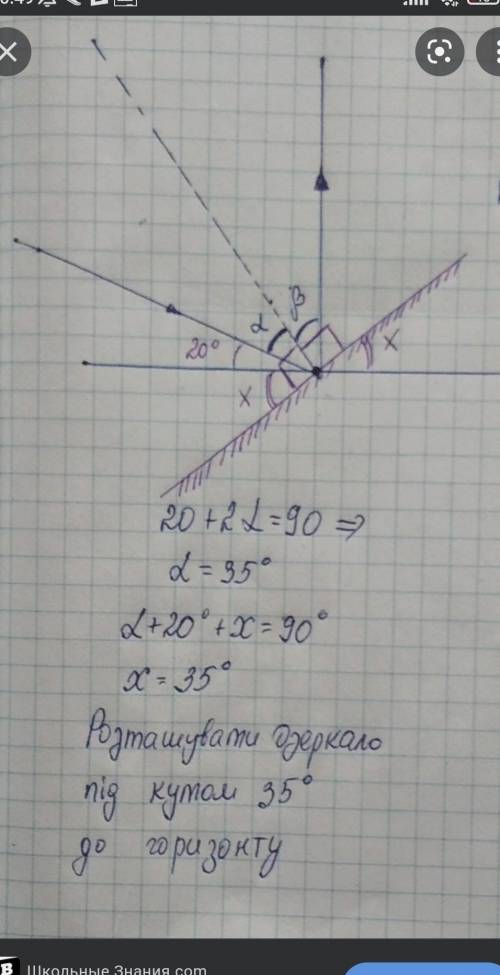 α
β
20°
x
x
20 + 2α = 90 ⇒
α = 35°
α + 20° + x = 90°
x = 35°
Розташувати дзеркало
під кутом 35°
до горизонту
Школьные Знания.com